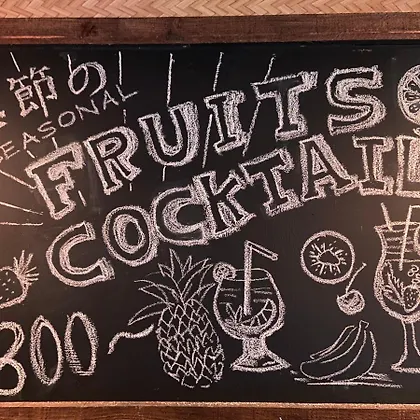 節の
SEASONAL
FRUITS
COCKTAIL
800～